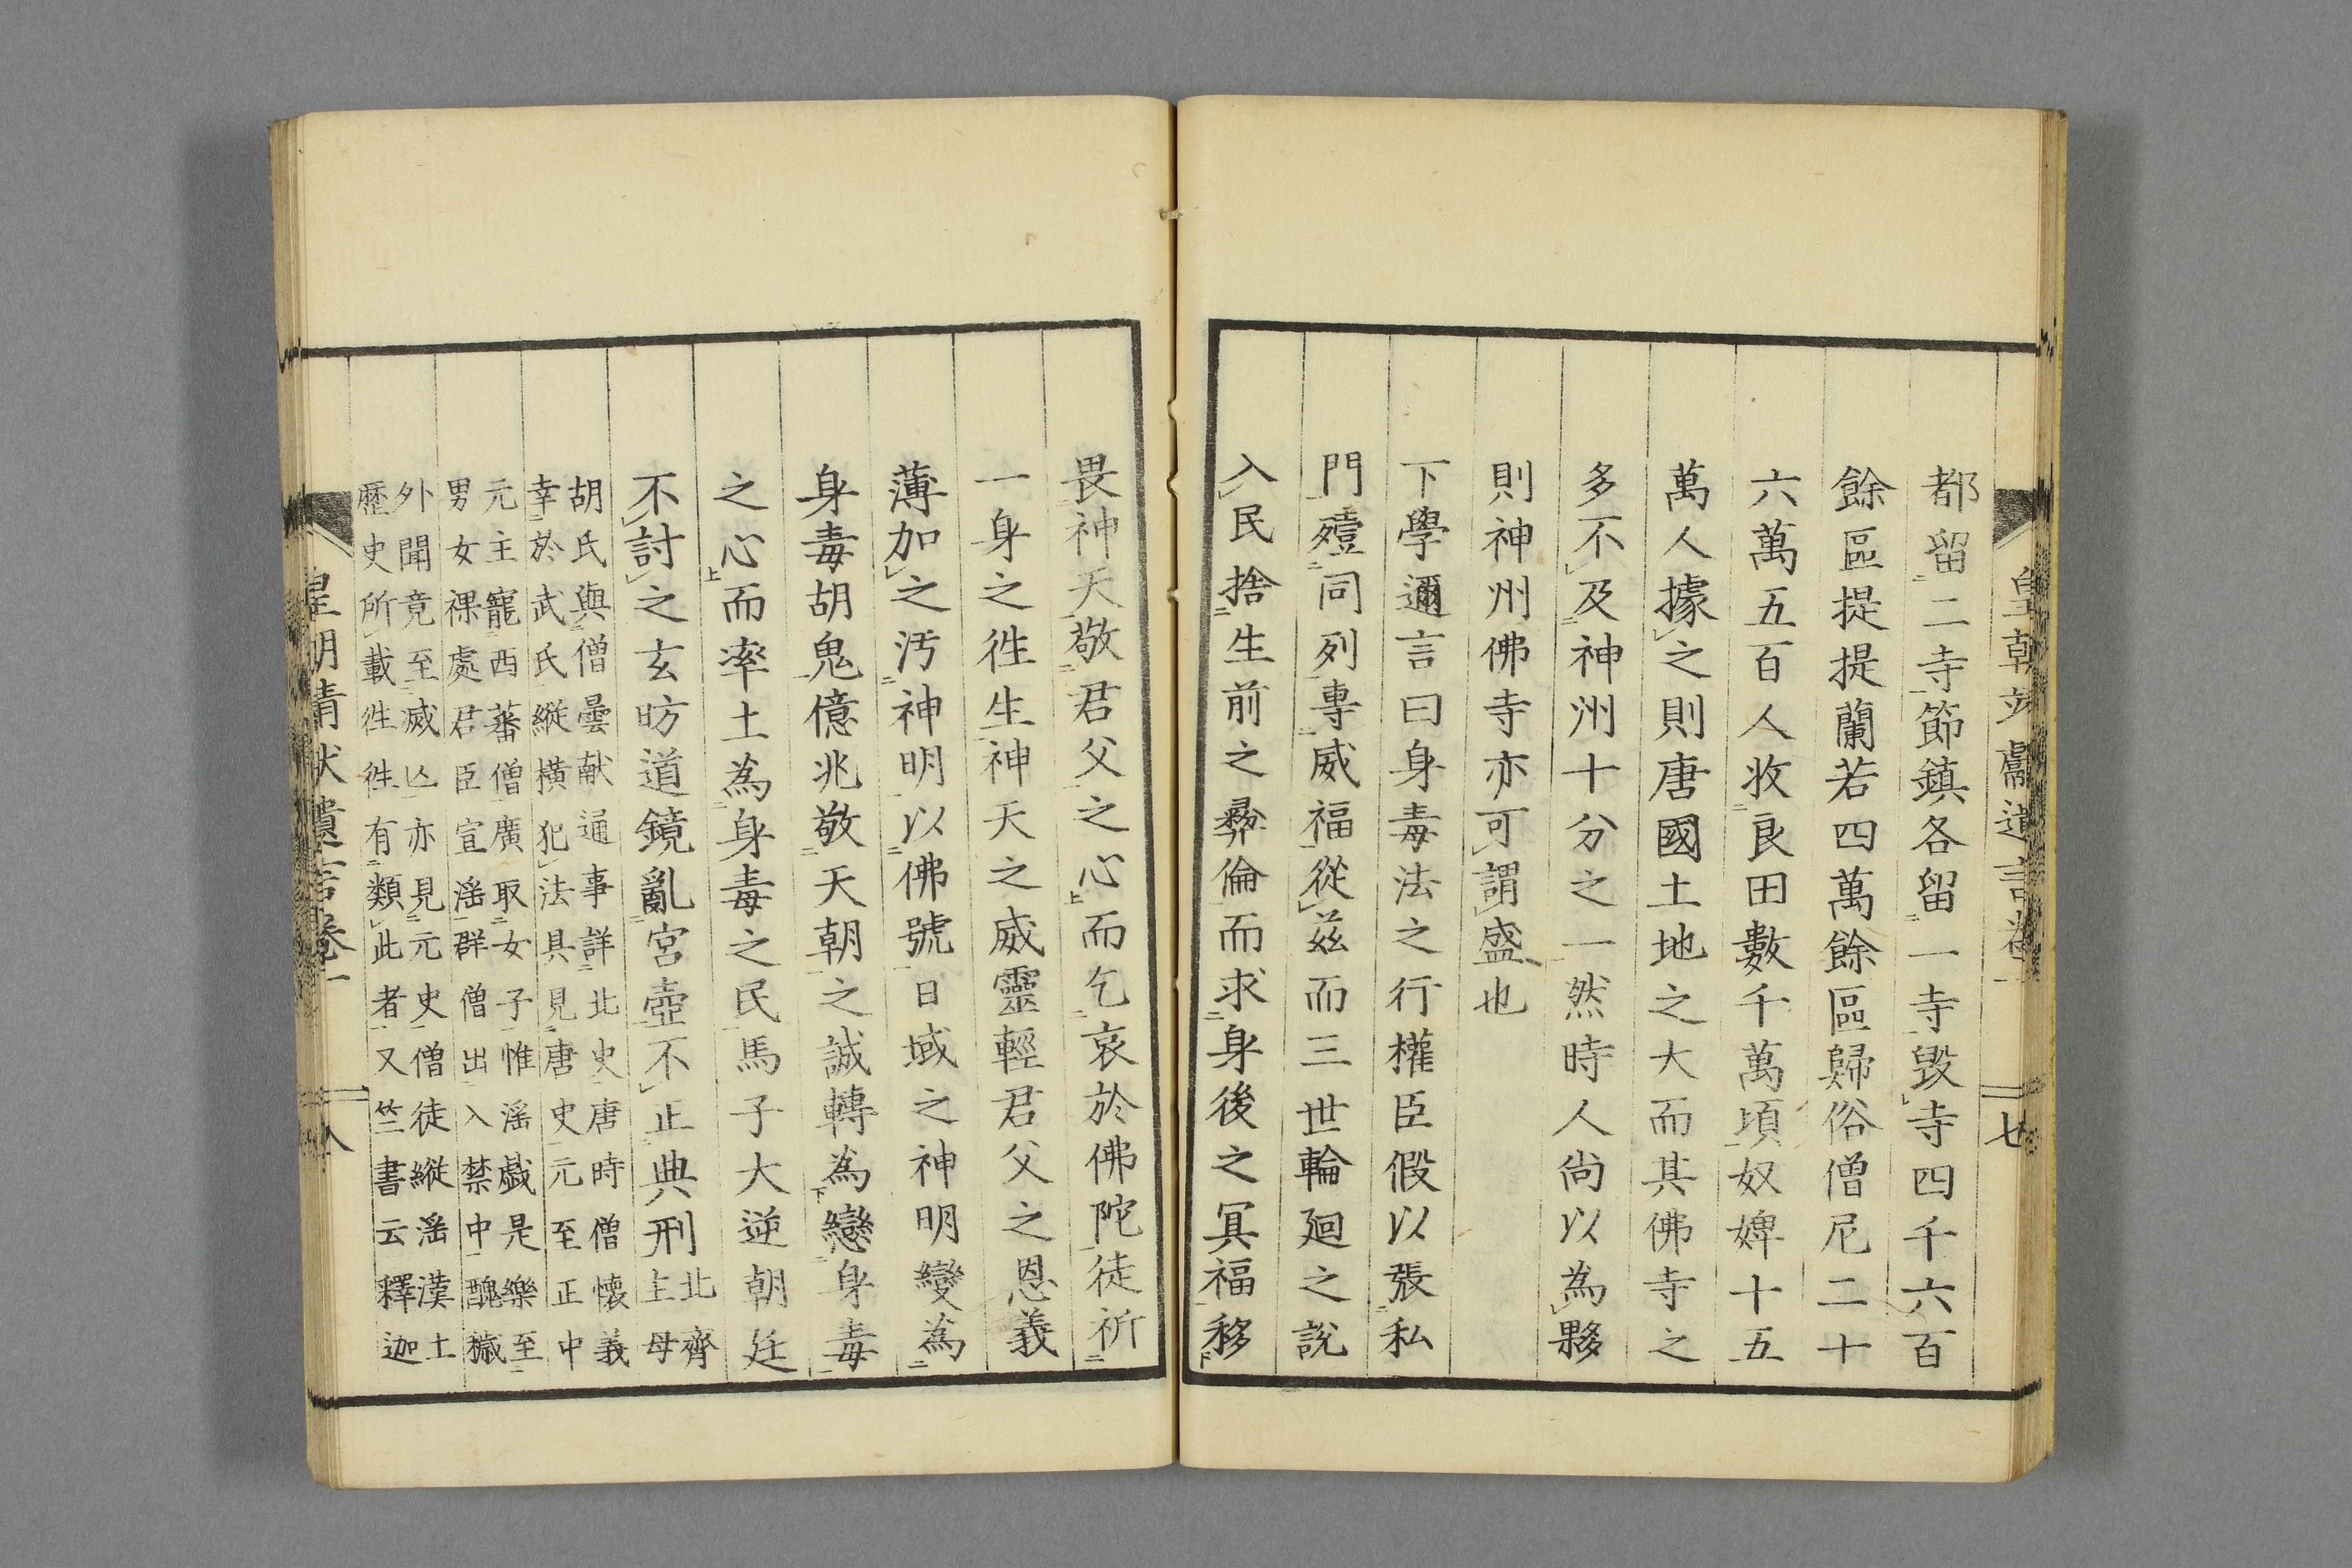 皇朝靖獻遺言卷一 七
都留二寺節鎮各留一寺毀寺四千六百
餘區提提蘭若四萬餘區歸俗僧尼二十
六萬五百人收良田數千萬頃奴婢十五
萬人據之則唐國土地之大而其佛寺之
多不及神洲十分之一然時人尚以為夥
則神州佛寺亦可謂盛也
下學邇言曰身毒法之行權臣假以張私
門殪同列專威福從茲而三世輪廻之說
入民捨生前之彝倫而求身後之冥福移
畏神天敬君父之心而乞哀於佛陀徒祈
一身之徃生神天之威靈輕君父之恩義
薄加之汚神明以佛號日域之神明變為
身毒胡鬼億兆敬天朝之誠轉為戀身毒
之心而率土為身毒之民馬子大逆朝廷
不討之玄昉道鏡亂宮壼不正典刑
北齊
主母
胡氏與僧曇献通事詳北史唐時僧懷義
幸於武氏縱橫犯法具見唐史元至正中
元主寵西蕃僧廣取女子惟滛戯是樂至
男女裸處君臣宣滛群僧出入禁中醜穢
外聞竟至滅亾亦見元史僧徒縱滛漢土
歷史所載徃徃有類此者又竺書云釋迦
皇朝靖献遺言卷一 八